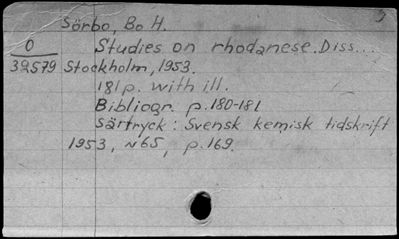 Sörbo, Bo H.
O Studies on rhodanese. Diss...
39579 Stockholm, 1953.
181 p. with ill.
Bibliogr. p. 180-181
Särtryck: Svensk kemisk tidskrift
1953, N65, p. 169.